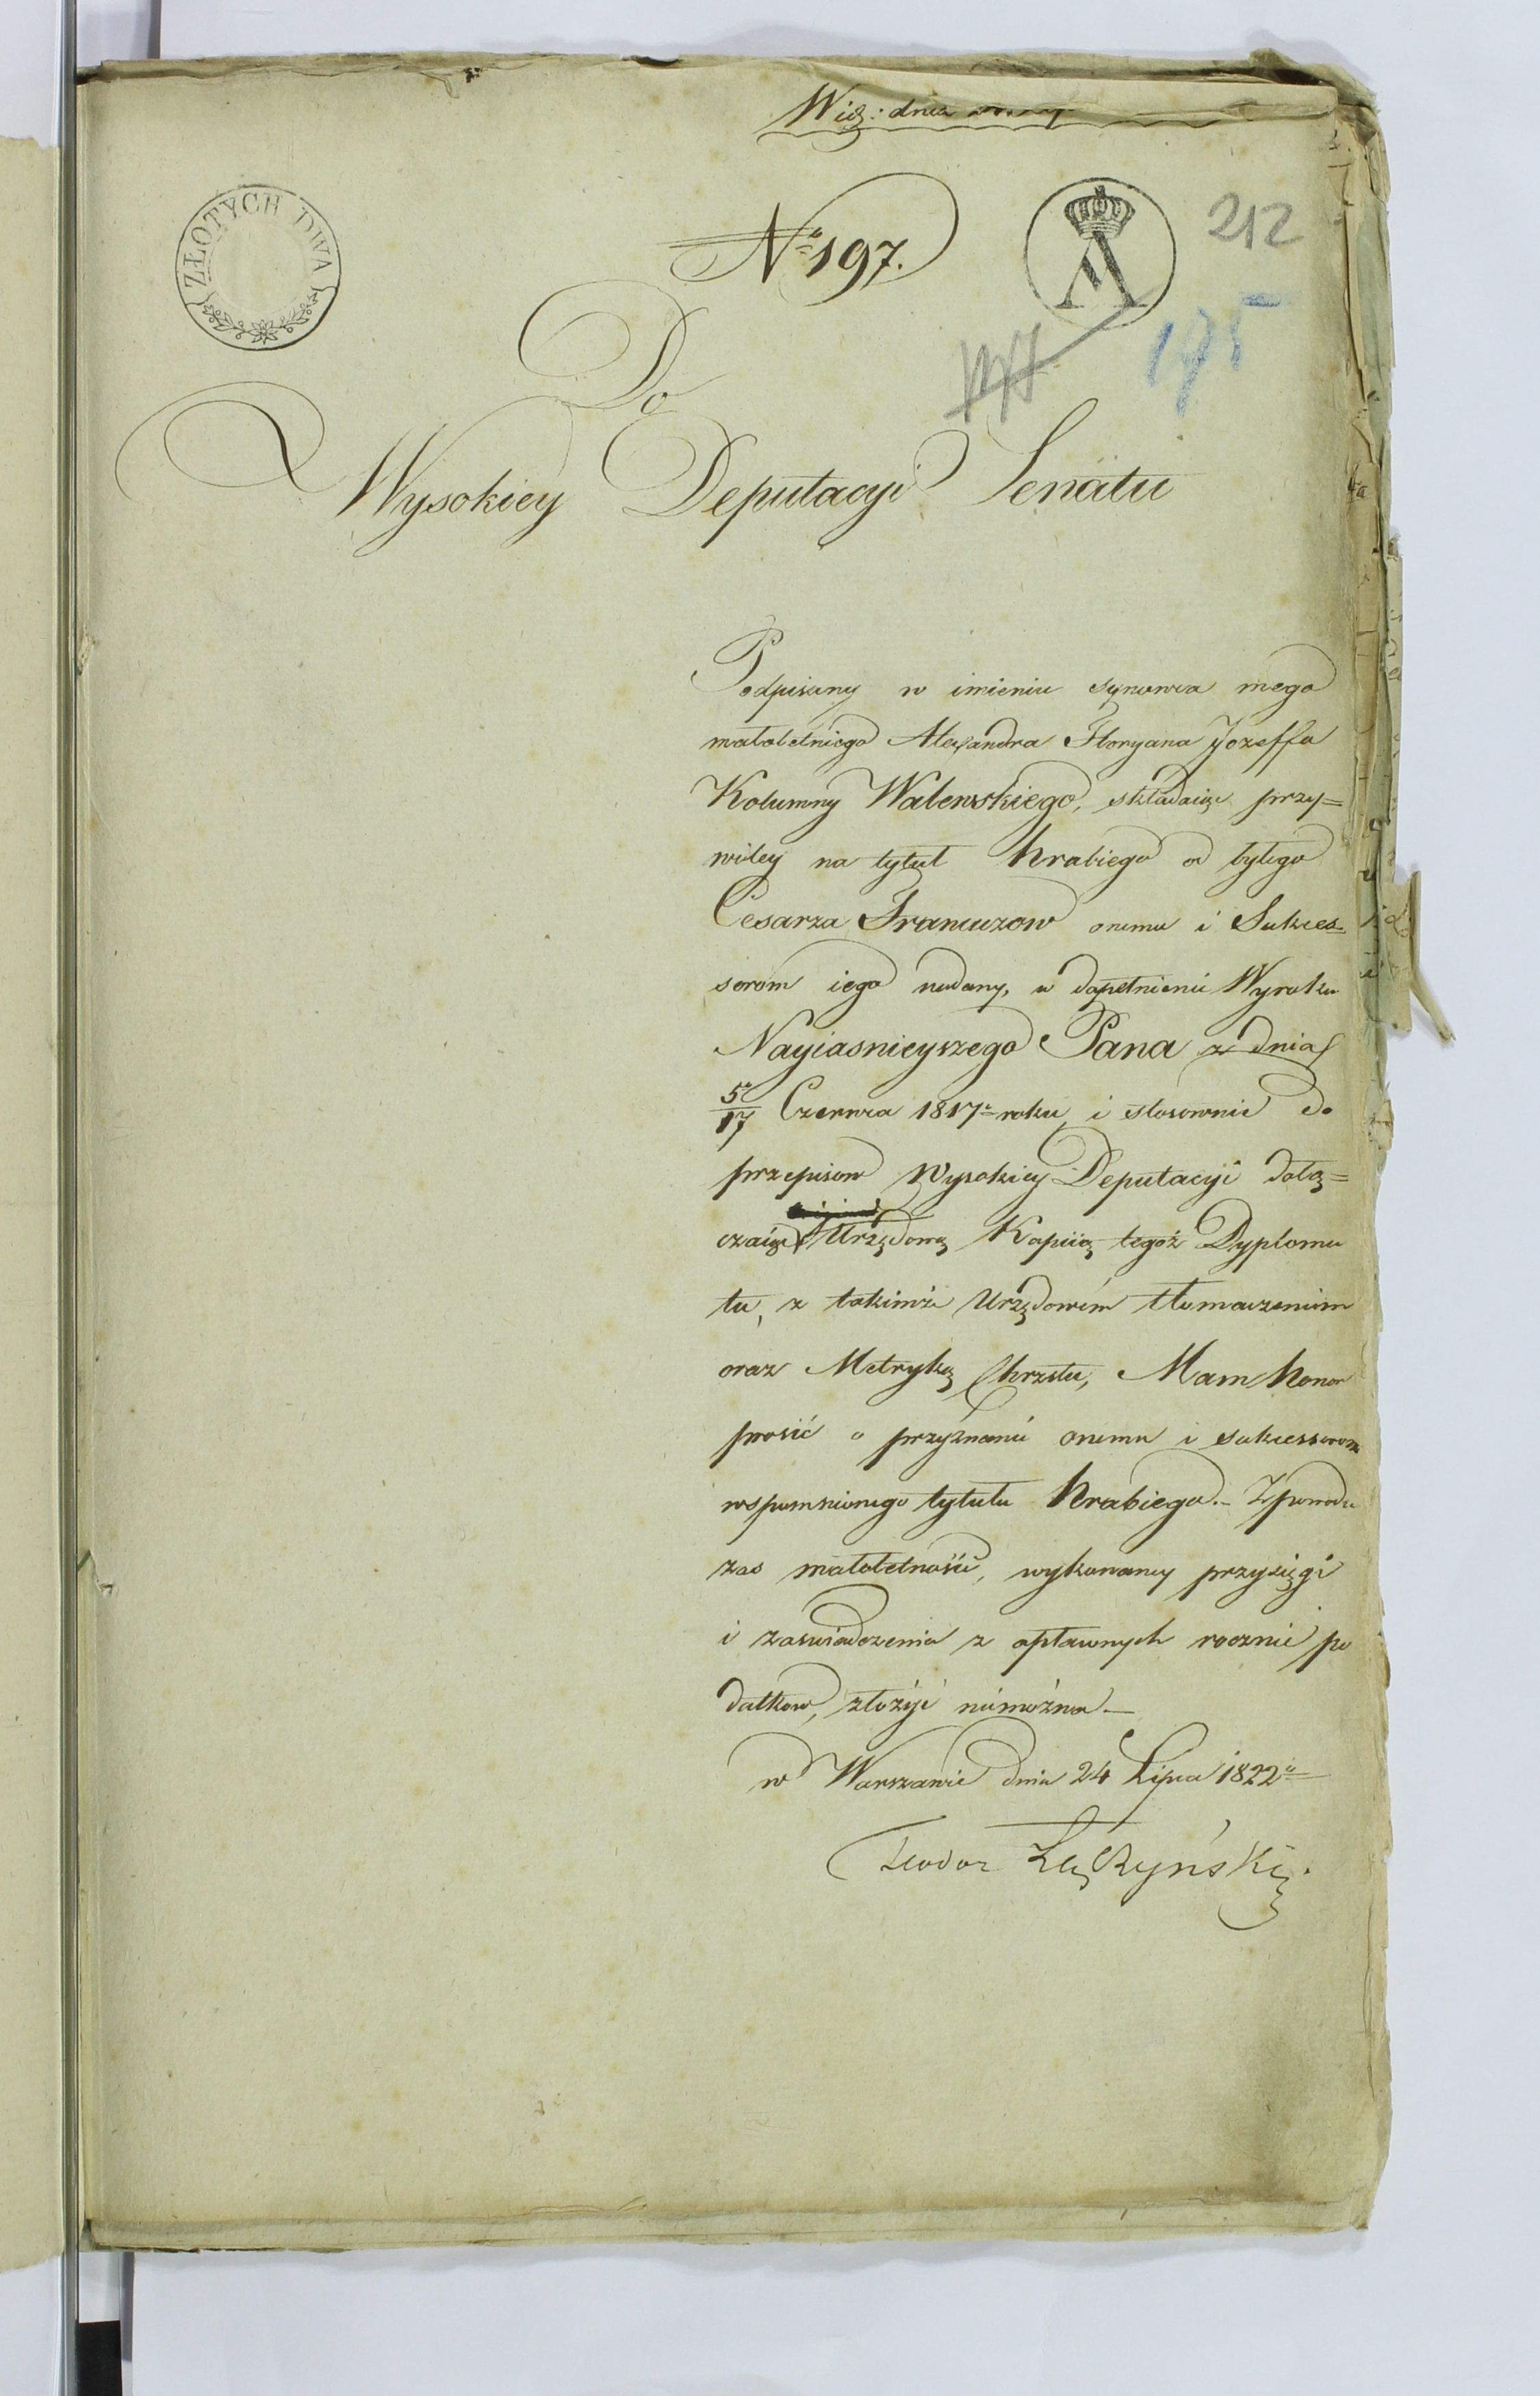 Wid: dnia
ZŁOTYCH DWA
No 197.
A
212
195
Do
Wysokiey Deputacyi Senatu
Podpisany w imieniu synowca mego
małoletniego Alexandra Floryana Jozeffa
Kolumny Walewskiego, składaiąc przy=
wiley na tytuł Hrabiego od byłego
Cesarza Francuzow onemu i Sukces=
sorom iego nadany, w dopełnieniu Wyroku
Nayiasnieyszego Pana z dnia
5/17 Czerwca 1817o roku, i stosownie do
przepisow Wysokiey Deputacyi dołą=
czaiąc Urzędową Kopiią tegoż Dyploma
tu, z takimże Urzędowém tłomaczeniem
oraz Metryką Chrztu, Mam honor
prosić o przyznanie onemu i sukcessorom
wspomnionego tytułu Hrabiego. – Z powodu
zas małoletności, wykonaney przysięgi
i zaswiadczenia z opłaconych rocznie po
datkow, złożyć niemożna –
w Warszawie dnia 24 Lipca 1822o
Teodor Łączyński.